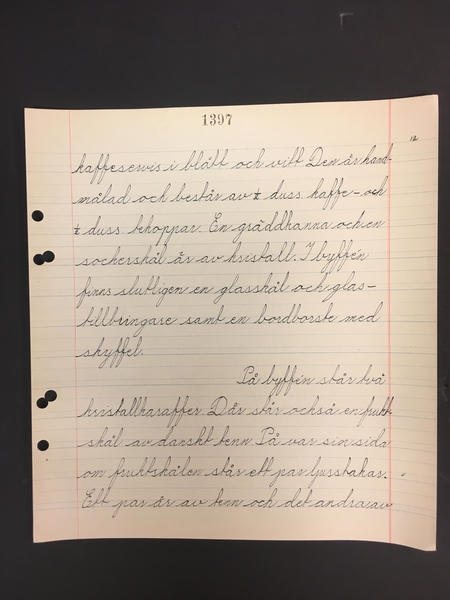 1397
12
kaffeservis i blått och vitt. Den är hand-
målad och består av ½ duss. kaffe- och
½ duss. tekoppar. En gräddkanna och en
sockerskål är av kristall. I byffén
finns slutligen en glasskål och glas-
tillbringare samt en bordborste med
skyffel.
På byffén står två
kristallkaraffer. Där står också en frukt-
skål av danskt tenn. På var sin sida
om fruktskålen står ett par ljusstakar.
Ett par är av tenn och det andra av